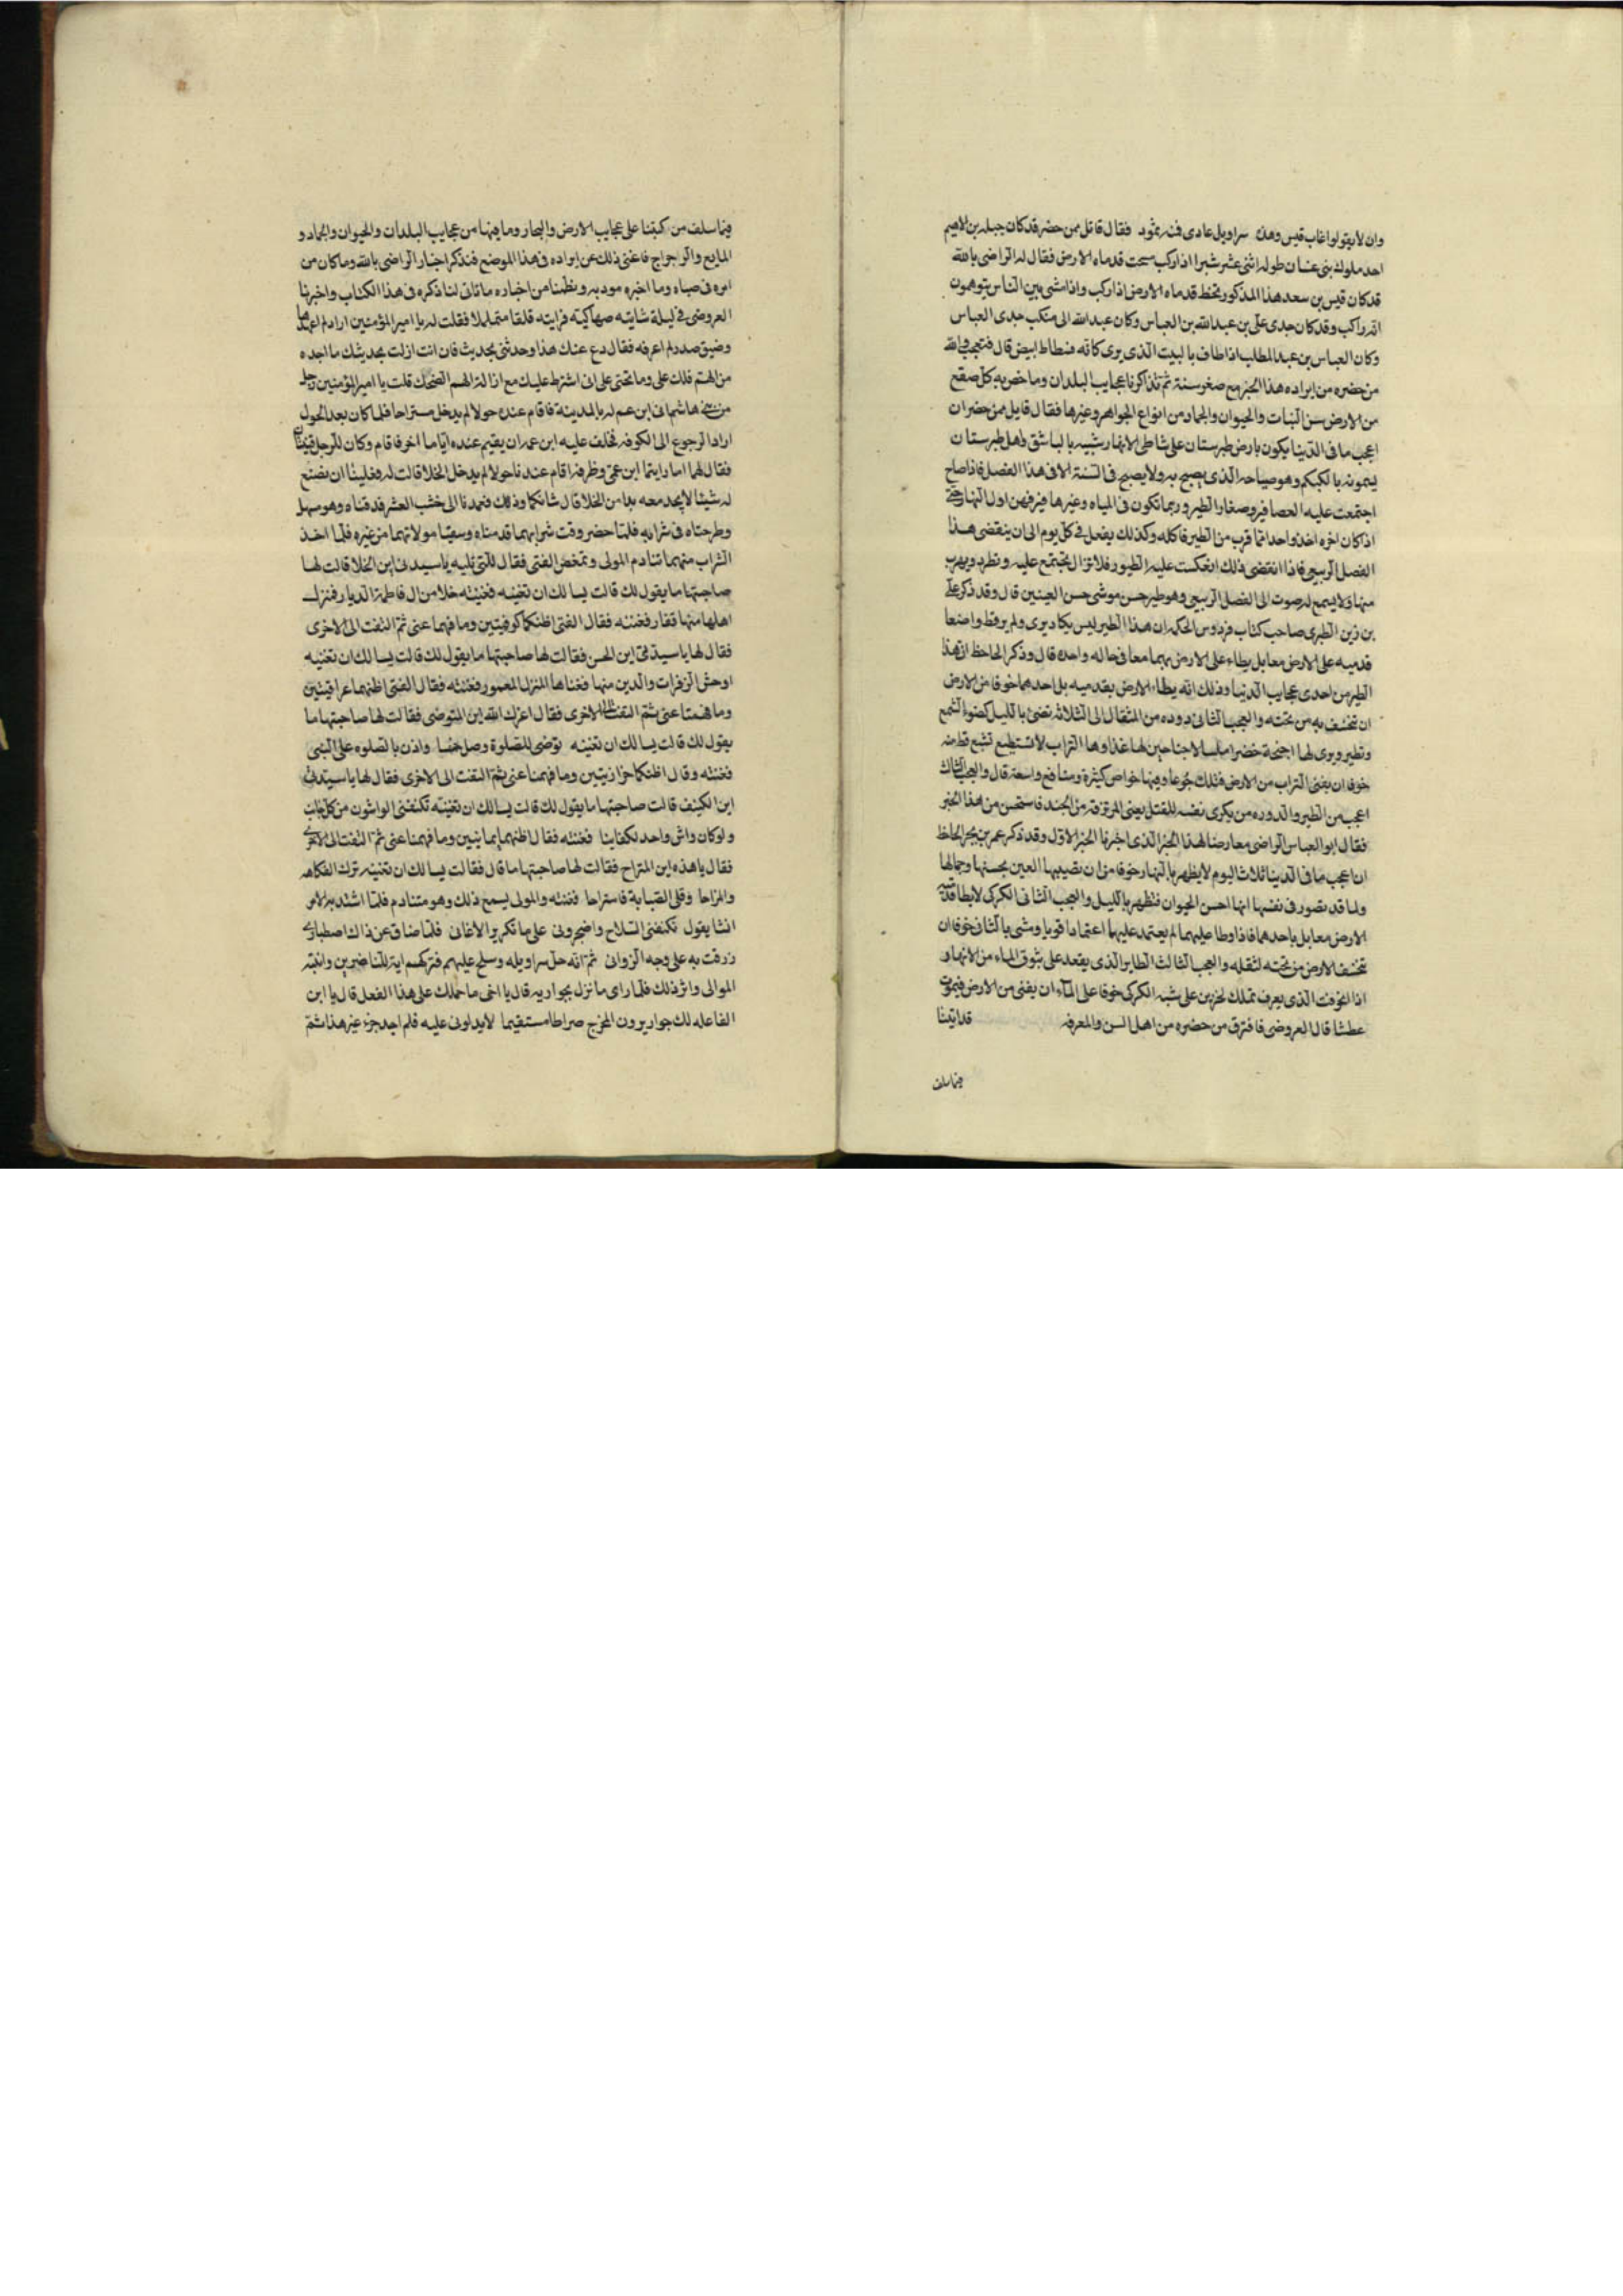 وان لا يقولوا غاب قيس وهذه سراويل عادى قد نمته ثمود فقال قائل ممن حضر قد كان جبله بن الايهم
احد ملوك بنى غسان طوله اثنى عشر شبرا اذا ركب سحت قدماه الارض فقال له الراضى بالله
قد كان قيس بن سعد هذا المذكور تخط قدماه الارض اذا ركب واذا مشى بين الناس يتوهمون
انه راكب وقد كان جدى على بن عبد الله بن العباس وكان عبد الله الى منكب جدى العباس
وكان العباس بن عبد المطلب اذا طاف بالبيت الذى يرى كانه فسطاط ابيض قال فتعجب والله
من حضره من ايراده هذا الخبر مع صغر سنه ثم تذاكرنا عجايب البلدان وما خص به كل صقع
من الارض من النبات والحيوان والجماد من انواع الجواهر وغيرها فقال قايل ممن حضر ان
اعجب ما فى الدنيا يكون بارض طبرستان على شاطى الانهار شبيه بالباشق واهل طبرستان
يسمونه بالككم وهو صياحه الذى يصيح به ولا يصيح فى السنة الا فى هذا الفصل فاذا صاح
اجتمعت عليه العصافير وصغار الطير وربما تكون فى المياه وغيرها فيزقهن اول النهار حتى
اذا كان اخره اخذ واحدا مما قرب من الطير فاكله وكذلك يفعل فى كل يوم الى ان ينقضى هذا
الفصل الربيعى فاذا انقضى ذلك انعكست عليه الطيور فلا تزال تجتمع عليه وتطرد ويهرب
منها ولا يسمع له صوت الى الفصل الربيعى وهو طير حسن موشى حسن العينين قال وقد ذكر على
بن زين الطبرى صاحب كتاب فردوس الحكمه ان هذا الطير ليس يكاد يرى ولم ير قط واضعا
قدميه على الارض معا بل يطاء على الارض بهما معا فى حاله واحده قال وذكر الجاحظ ان هذا
الطير من احدى عجايب الدنيا وذلك انه يطاء الارض بقدميه بل احدهما خوفا من الارض
ان تخسف به من تحته والعجب الثانى دوده من المثقال الى الثلاثه تضئ بالليل كضوء الشمع
وتطير ويرى لها اجنحة خضرا ملسا لا جناحين لها غذاوها التراب لا تستطيع تشبع قط منه
خوفا ان يفنى التراب من الارض فتهلك جوعا وفيها خواص كثيرة ومنافع واسعة قال والعجب الثالث
اعجب من الطير والدوده من يكرى نفسه للقتل يعنى المرتزقه من الجند فاستحسن من هذا الخبر
فقال ابو العباس الراضى معارضا لهذا الخبر الذى اخبرنا الخبر الاول وقد ذكر عمر بن بحر الجاحظ
ان اعجب ما فى الدنيا ثلاث اليوم لا يظهر بالنهار خوفا من ان تصيبها العين بحسنها وجمالها
ولما قد تصور فى نفسها انها احسن الحيوان فتظهر بالليل والعجب الثانى الكركى لا يطا قدميه
الارض معا بل باحدهما فاذا وطا عليهما لم يعتمد عليها اعتمادا قويا ومشى بالثانى خوفا ان
تخسف الارض من تحته لثقله والعجب الثالث الطاير الذى يقعد على بثوق الماء من الانهار و
اذا انخوفت الذى يعرف بمالك لحزين على شبه الكركى خوفا على الماء ان يفنى من الارض فيموت
عطشا قال العروضى فافترق من حضره من اهل السن والمعرفه قد اتينا
فيما سلف
فيما سلف من كتبنا على عجايب الارض والبحار وما فيها من عجايب البلدان والحيوان والجماد و
المايع والرجراج فاغنى ذلك عن ايراده فى هذا الموضع فنذكر اخبار الراضى بالله وما كان من
امره فى صباه وما اخبره مودبه ونظمنا من اخباره ماتاتى لنا ذكره فى هذا الكتاب واخبرنا
العروضى فى ليلة شاتيه صهاكيه فرايته قلقا متململا فقلت له يا امير المؤمنين اراد لم اعهدها
وضيق صدر لم اعرفه فقال دع عنك هذا وحدثنى بحديث فان انت ازلت بحديثك ما اجده
من الهم فلك على وما تحتى على انى اشترط عليك مع ازالة الهم الضحك قلت يا امير المؤمنين رحل
من بنى هاشم الى ابن عم له بالمدينة فاقام عنده حولا لم يدخل مستراحا فلما كان بعد الحول
اراد الرجوع الى الكوفه فحلف عليه ابن عمه ان يقيم عنده اياما اخر فاقام وكان للرجل قينتان
فقال لهما اما رايتما ابن عمى وظرفه اقام عندنا حولا لم يدخل الخلا قالت له فعلينا ان نصنع
له شيئا لا يجد معه بدا من الخلا قال شانكما وذلك فعمدنا الى خشب العشر فدقتاه وهو مسهل
وطرحتاه فى شرابه فلما حضر وقت شرابهما قدمتاه وسقيتا مولاتهما من غيره فلما اخذ
الشراب منهما تنادم المولى وتمغص الفتى فقال للتى تليه يا سيدتى اين الخلا قالت لها
صاحبتها ما يقول لك قالت يسالك ان تغنيه فغنيته خلا من ال فاطمة الديار فمنزل
اهلها منها قفار فغنته فقال الفتى اظنكما كوفيتين وما فهما عنى ثم التفت الى الاخرى
فقال لها يا سيدتى اين الحسن فقالت لها صاحبتها ما يقول لك قالت يسالك ان تغنيه
اوحش الزفرات والدين منها فغناها المنزل المعمور فغنته فقال الفتى اظنهما عراقيتين
وما فهمتا عنى ثم التفت الى الاخرى فقال اعزك الله اين المتوضى فقالت لها صاحبتها ما
يقول لك قالت يسالك ان تغنيه توضى للصلوة وصل خمسا واذن بالصلوه على النبى
فغنته وقال اظنكما حجازيتين وما فهمنا عنى ثم التفت الى الاخرى فقال لها يا سيدتى
اين الكنيف قالت صاحبتها ما يقول لك قالت يسالك ان تغنيه تكنفنى الواشون من كل جانب
ولو كان واش واحد لكفانيا فغنته فقال اظنهما يمانيتين وما فهمنا عنى ثم التفت الى الاخرى
فقال يا هذه اين المتراح فقالت لها صاحبتها ما قال فقالت يسالك ان تغنيه ترك الفكاهه
والمزاحا وقلى الصبابة فاستراحا فغنته والمولى يسمع ذلك وهو متنادم فلما اشتد به الامر
انشا يقول تكنفنى السلاح واضجرونى على ما تكرير الاغانى فلما ضاق عن ذاك اصطبارى
ذرقت به على وجه الزوانى ثم انه حل سراويله وسلح عليهم فتركهم اية للناضرين وانتبه
الموالى واثر ذلك فلما راى ما نزل بجواريه قال يا اخى ما حملك على هذا الفعل قال يا ابن
الفاعله لك جوار يرون المخرج صراطا مستقيما لا يدلونى عليه فلم اجد جزء غير هذا ثم